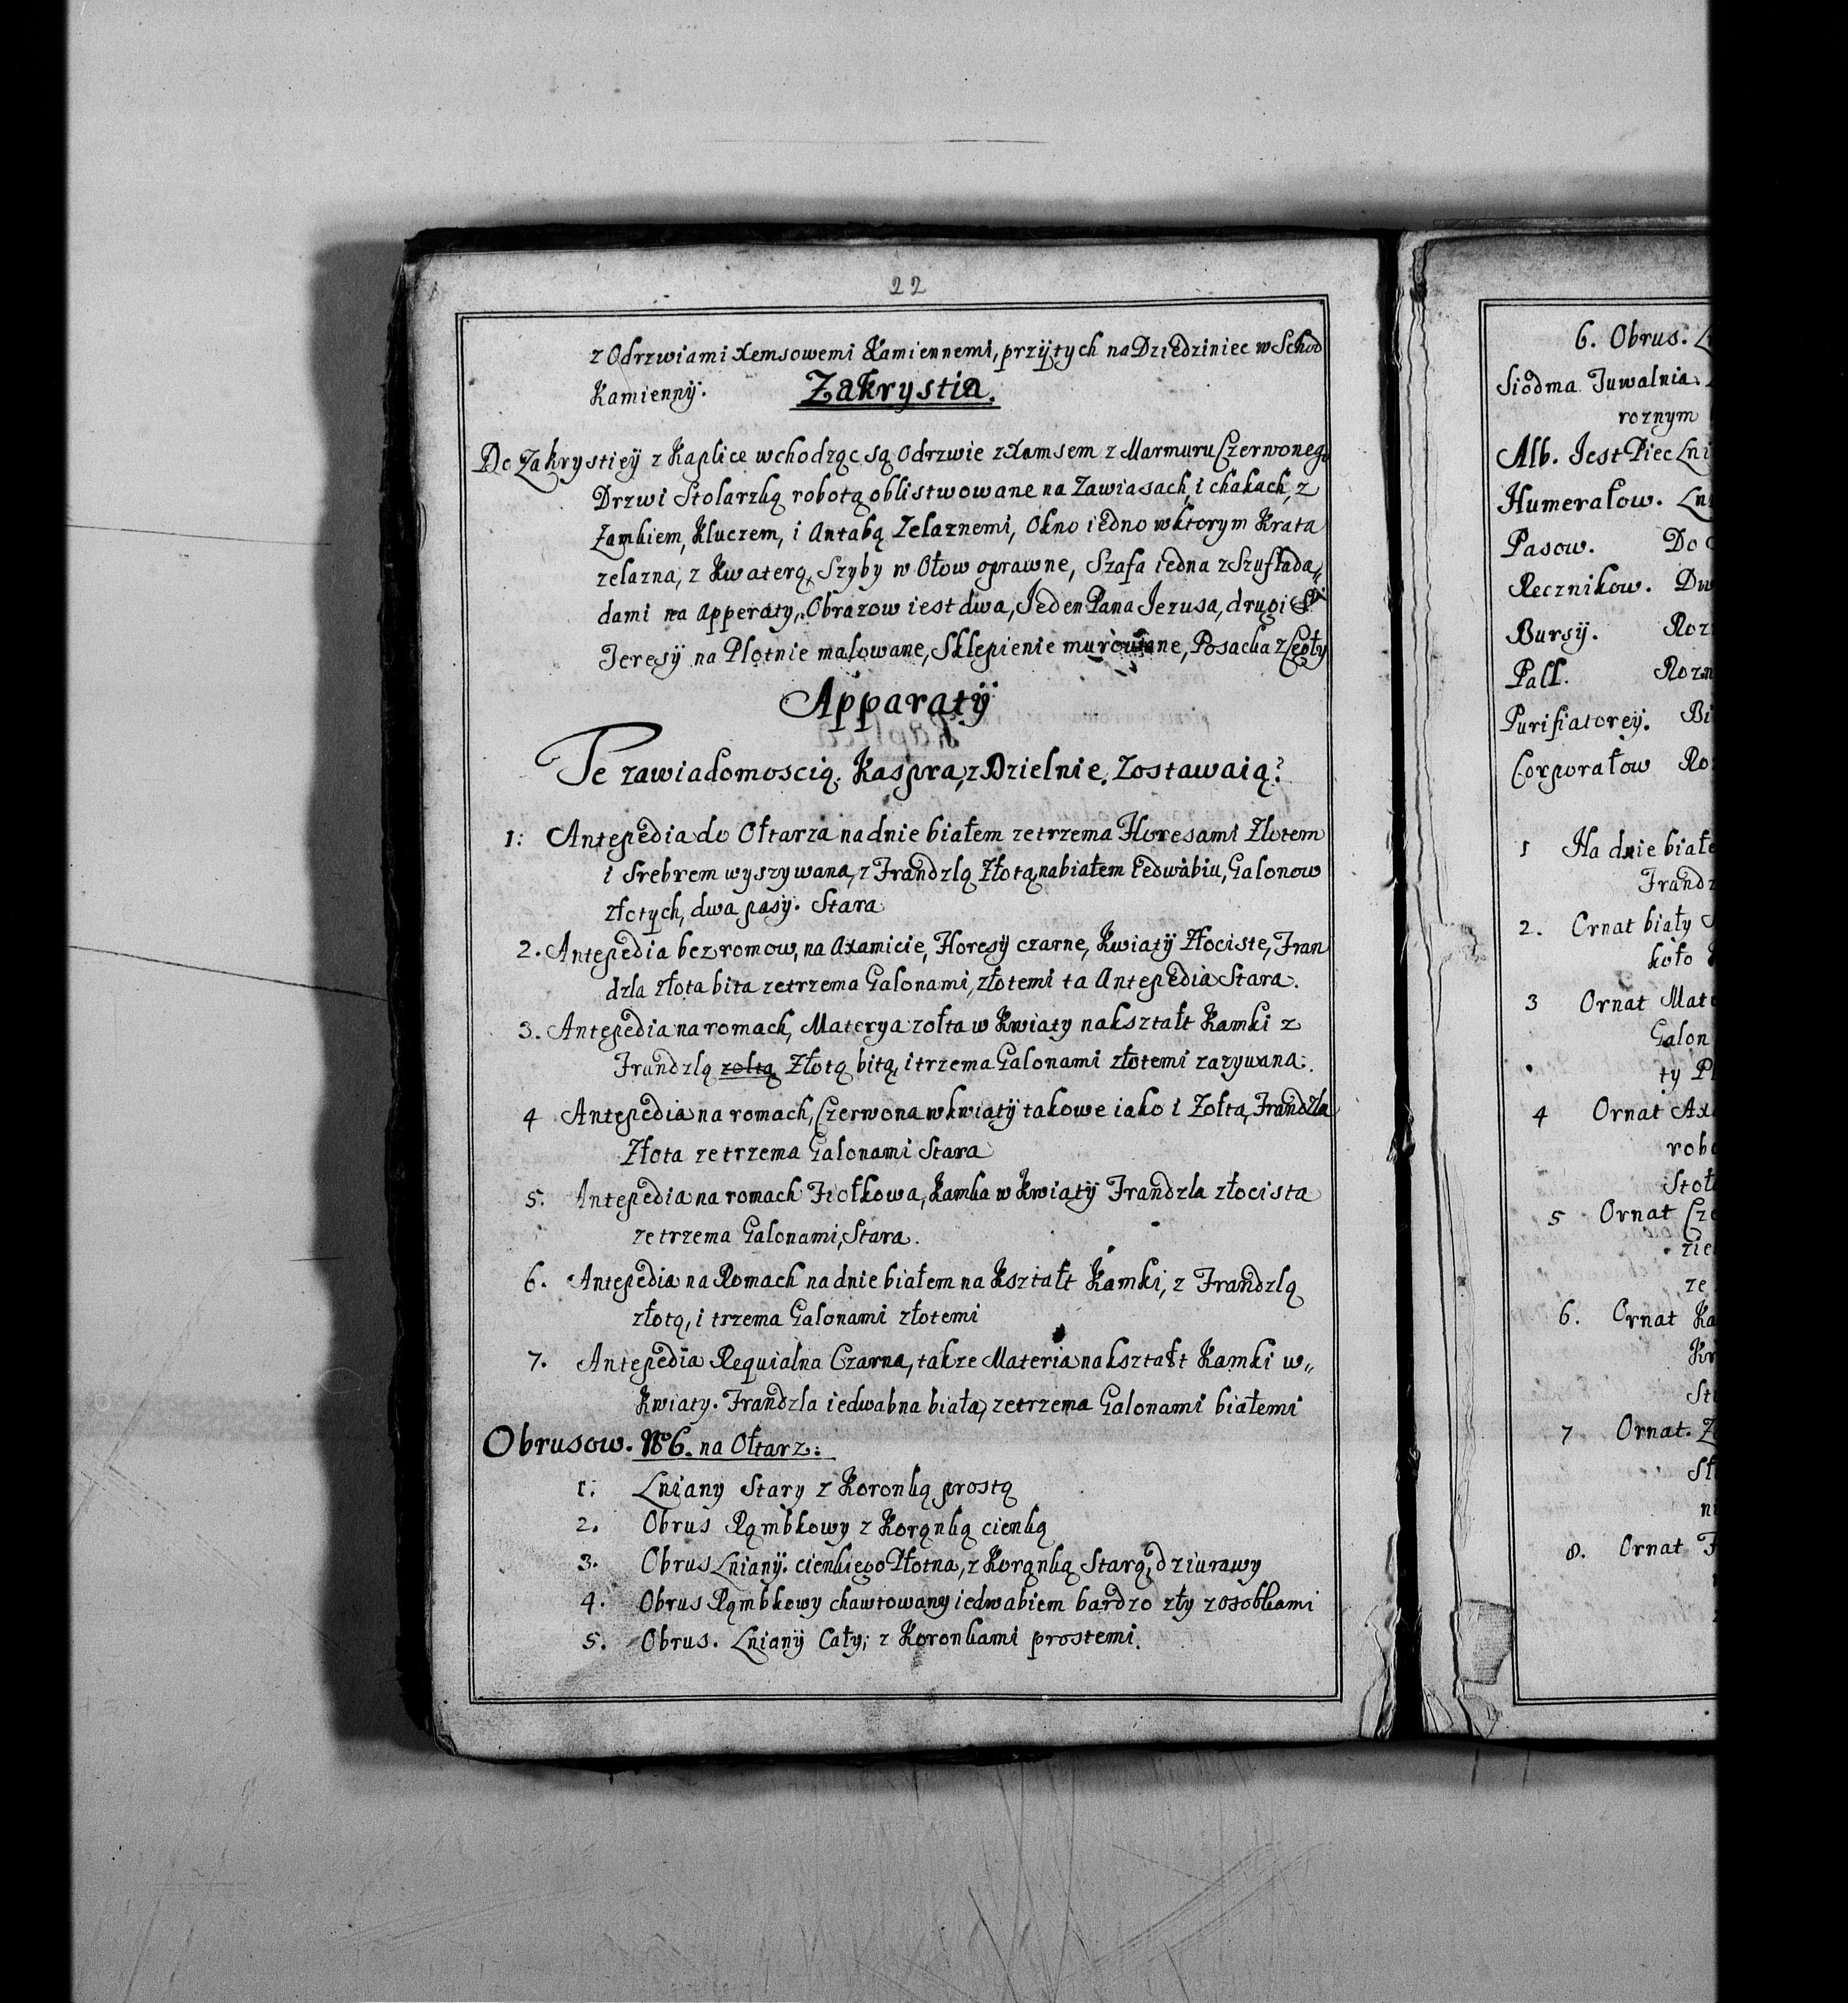 22
z Odrzwiami xemsowemi Kamiennemi, przijtych na Dziedziniec w Schod
Kamiennÿ. Zakrystia.
Do Zakrystieÿ z Kaplice wchodząc są Odrzwie z xemsem z Marmuru Czerwoneg°
Drzwi Stolarzką robotą oblistwowane na Zawiasach, i chakach, z
Zamkiem, Kluczem, i Antabą Zelaznemi, Okno iedno wktorym Krata
zelazna, z Kwaterą, Szyby w Ołow oprawne, Szafa iedna z Szuflada„
dami na Apperaty, Obrazow iest dwa, Jeden Pana Jezusa, drugi S:
Teresÿ na Płotnie malowane, Sklepienie murowane, Posacka z Cegły
Apparatÿ
Te zawiadomoscią. Kaspra, z Dzielnie. Zostawaią?
1: Antepedia do Ołtarza nadnie białem zetrzema Floresami Złotem
i Srebrem wyszywana, z Frandzlą Złotą, nabiałem Iedwabiu, Galonow
złotych, dwa pasÿ. Stara
2. Antepedia bez romow, na Axamicie, Floresÿ czarne, Kwiatÿ Złociste, Fran
dzla złota bita zetrzema Galonami, złotemi ta Antepedia Stara.
3. Antepedia na romach, Materya zołta w Kwiaty nakształt Kamki z
Frandzlą zoltą Złotą bitą, i trzema Galonami złotemi zazywana.
4 Antepedia na romach, Czerwona wkwiatÿ takowe iako i Zołta, Frandzla
Złota zetrzema Galonami Stara
5. Antepedia na romach Fiołkowa, Kamka w Kwiatÿ Frandzla złocista
zetrzema Galonami, Stara.
6. Antepedia na Romach nadnie białem na Kształt Kamki, z Frandzlą
złotą, i trzema Galonami złotemi
7. Antepedia Requialna Czarna, takze Materia nakształt Kamki w„
Kwiaty. Frandzla iedwabna biała, zetrzema Galonami białemi
Obrusow. N° 6. na Ołtarz:
1. Lniany Stary z Koronką prostą
2. Obrus Rąmbkowy z Korąnką cienką
3. Obrus Lnianÿ. cienkiego Płotna, z Korąnką Starą, dziurawy
4. Obrus Rąmbkowy chawtowany iedwabiem bardzo zły zosobkami
5. Obrus. Lnianÿ Cały, z Koronkami prostemi.
6. Obrus.
Siodma Tuwalnia.
roznym
Alb. Jest Piec Lni
Humerałow. Ln
Pasow. Do
Recznikow. Dw
Bursÿ. Roz
Pall. Rozn
Purifiatoreÿ. Bi
Corporałow Ro
1 Na dnie białe
Frandz
2. Ornat biały
koło
3 Ornat Mate
Galon
ty Pl
4 Ornat Ax
robo
Stoł
5 Ornat Cze
zie
ze
6. Ornat Ka
Kw
St
7 Ornat. Z
St
ni
8. Ornat F